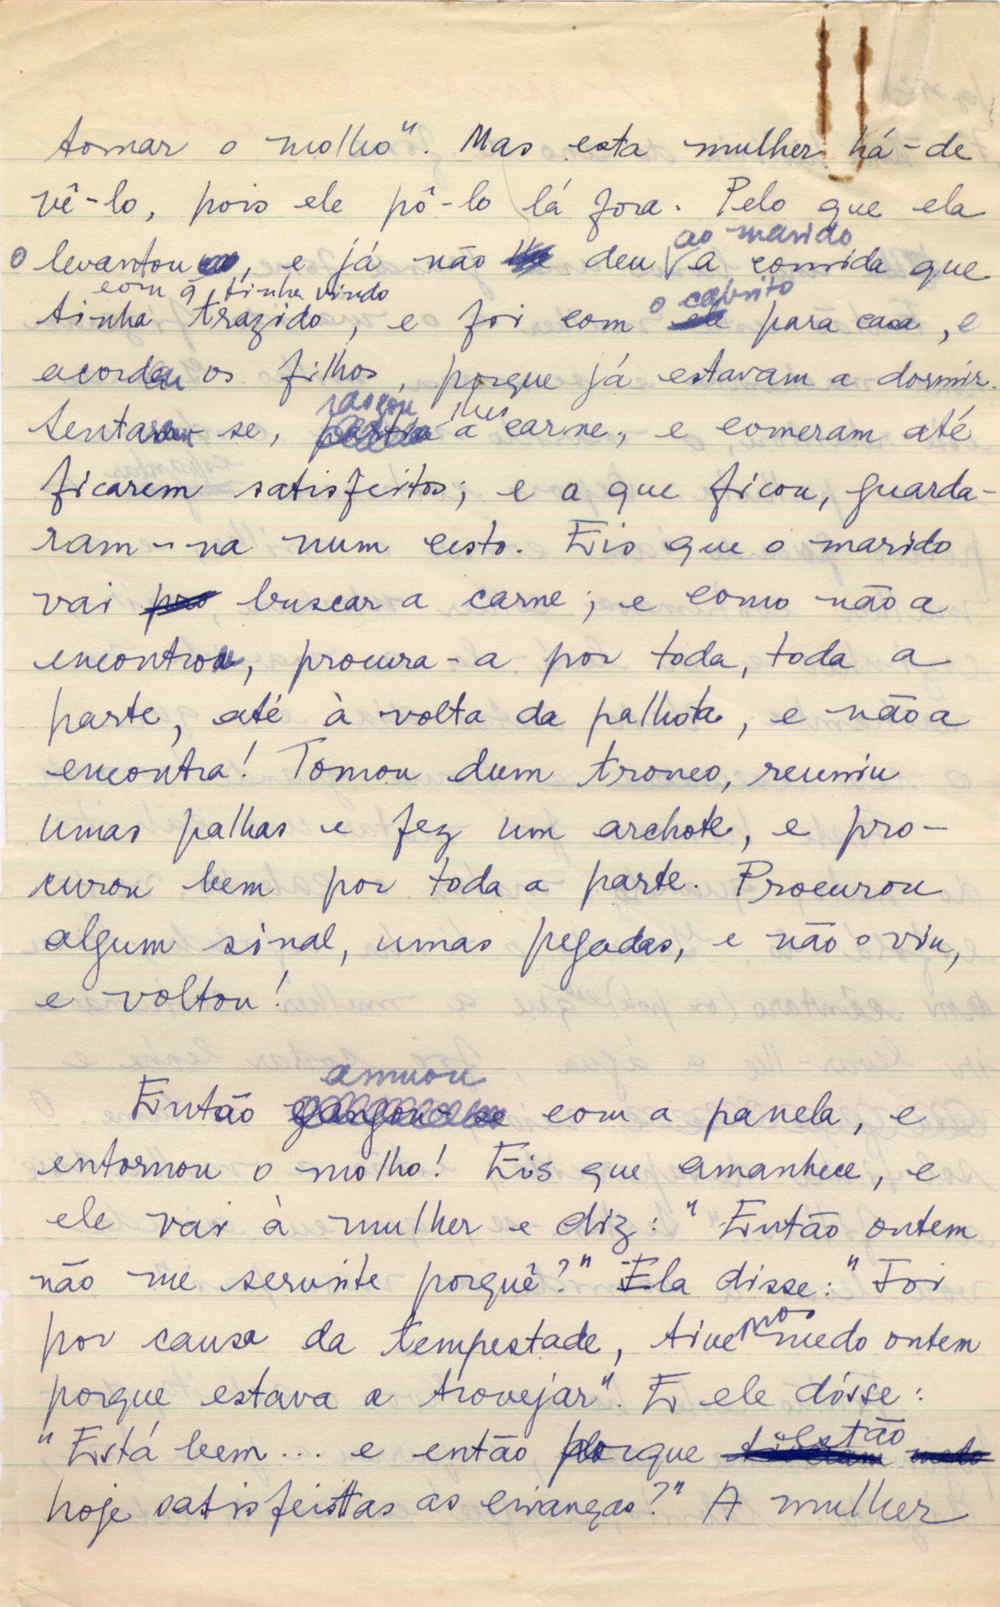 tomar o molho". Mas esta mulher há-de
vê-lo, pois ele pô-lo lá fora. Pelo que ela
ao marido
o levantou, e já não deu a comida que
com q tinha vindo
o cabrito
tinha trazido, e foi com para casa, e
acordou os filhos, porque já estavam a dormir.
rasgou lhes
Sentaram-se, a carne, e comeram até
ficarem satisfeitos; e a que ficou, guarda-
ram-na num cesto. Eis que o marido
vai buscar a carne; e como não a
encontrou, procura-a por toda, toda a
parte, até à volta da palhota, e não a
encontra! Tomou dum tronco, reuniu
umas palhas e fez um archote, e pro-
curou bem por toda a parte. Procurou
algum sinal, umas pegadas, e não o viu,
e voltou!
amuou
Então com a panela, e
entornou o molho! Eis que amanhece, e
ele vai à mulher e diz: "Então ontem
não me serviste porquê?" Ela disse: "Foi
por causa da tempestade, tivemos medo ontem
porque estava a trovejar". E ele disse:
estão
"Está bem... e então porque
hoje satisfeitas as crianças?" A mulher